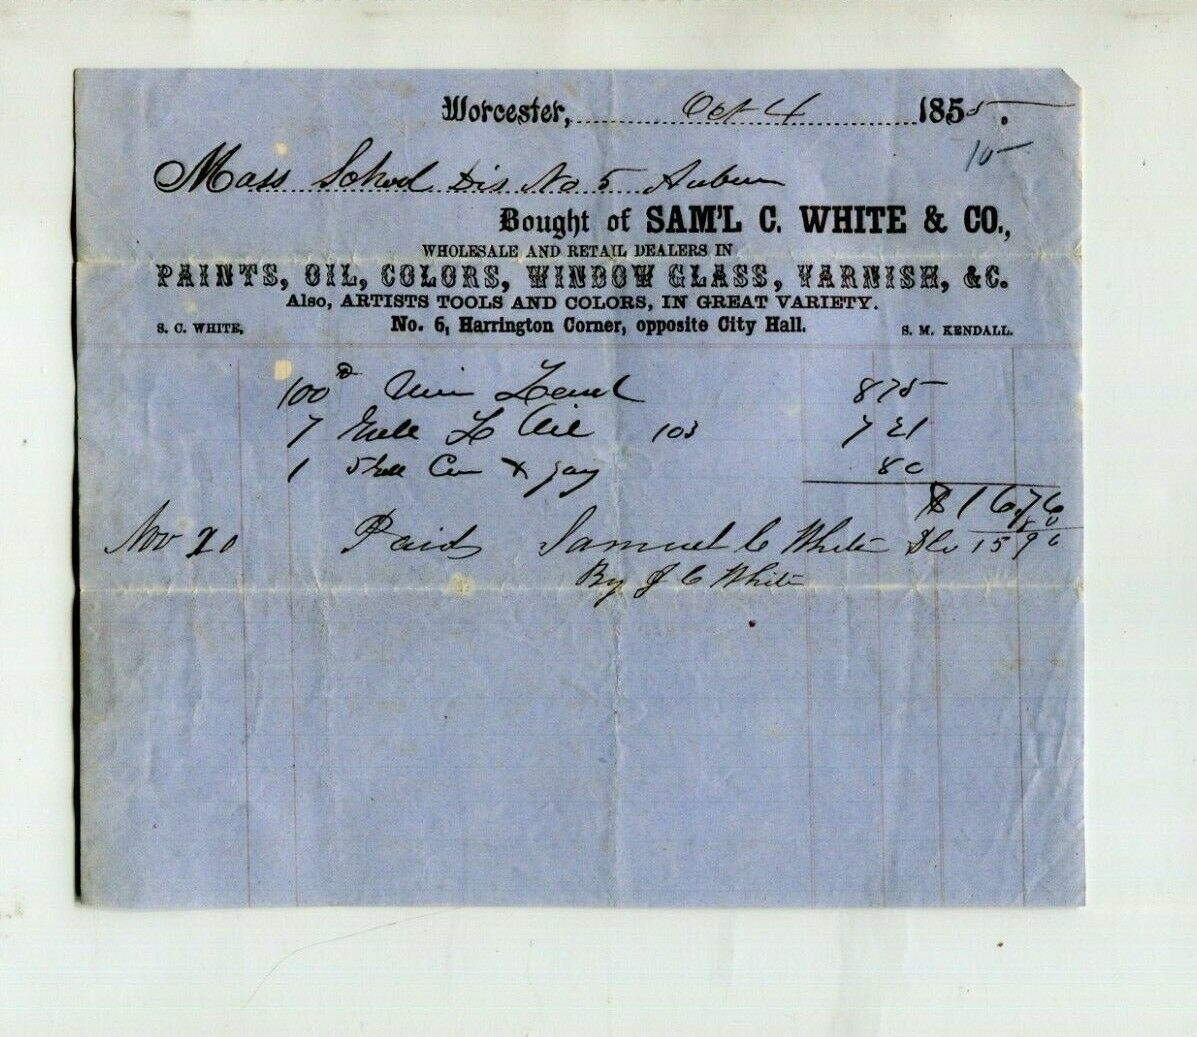 Worcester, Oct 4 1855.
10
Mass School Dis No 5 Auburn
Bought of SAM'L C. WHITE & CO.,
WHOLESALE AND RETAIL DEALERS IN
PAINTS, OIL, COLORS, WINDOW GLASS, VARNISH, &C.
Also, ARTISTS TOOLS AND COLORS, IN GREAT VARIETY.
S. C. WHITE, No. 6, Harrington Corner, opposite City Hall. S. M. KENDALL.
100 Lead 875
7 Galls L Oil 103 721
1 5 Gall Can 80
$16,76
80
Nov 20 Paid Samuel C White 15 96
By J C White